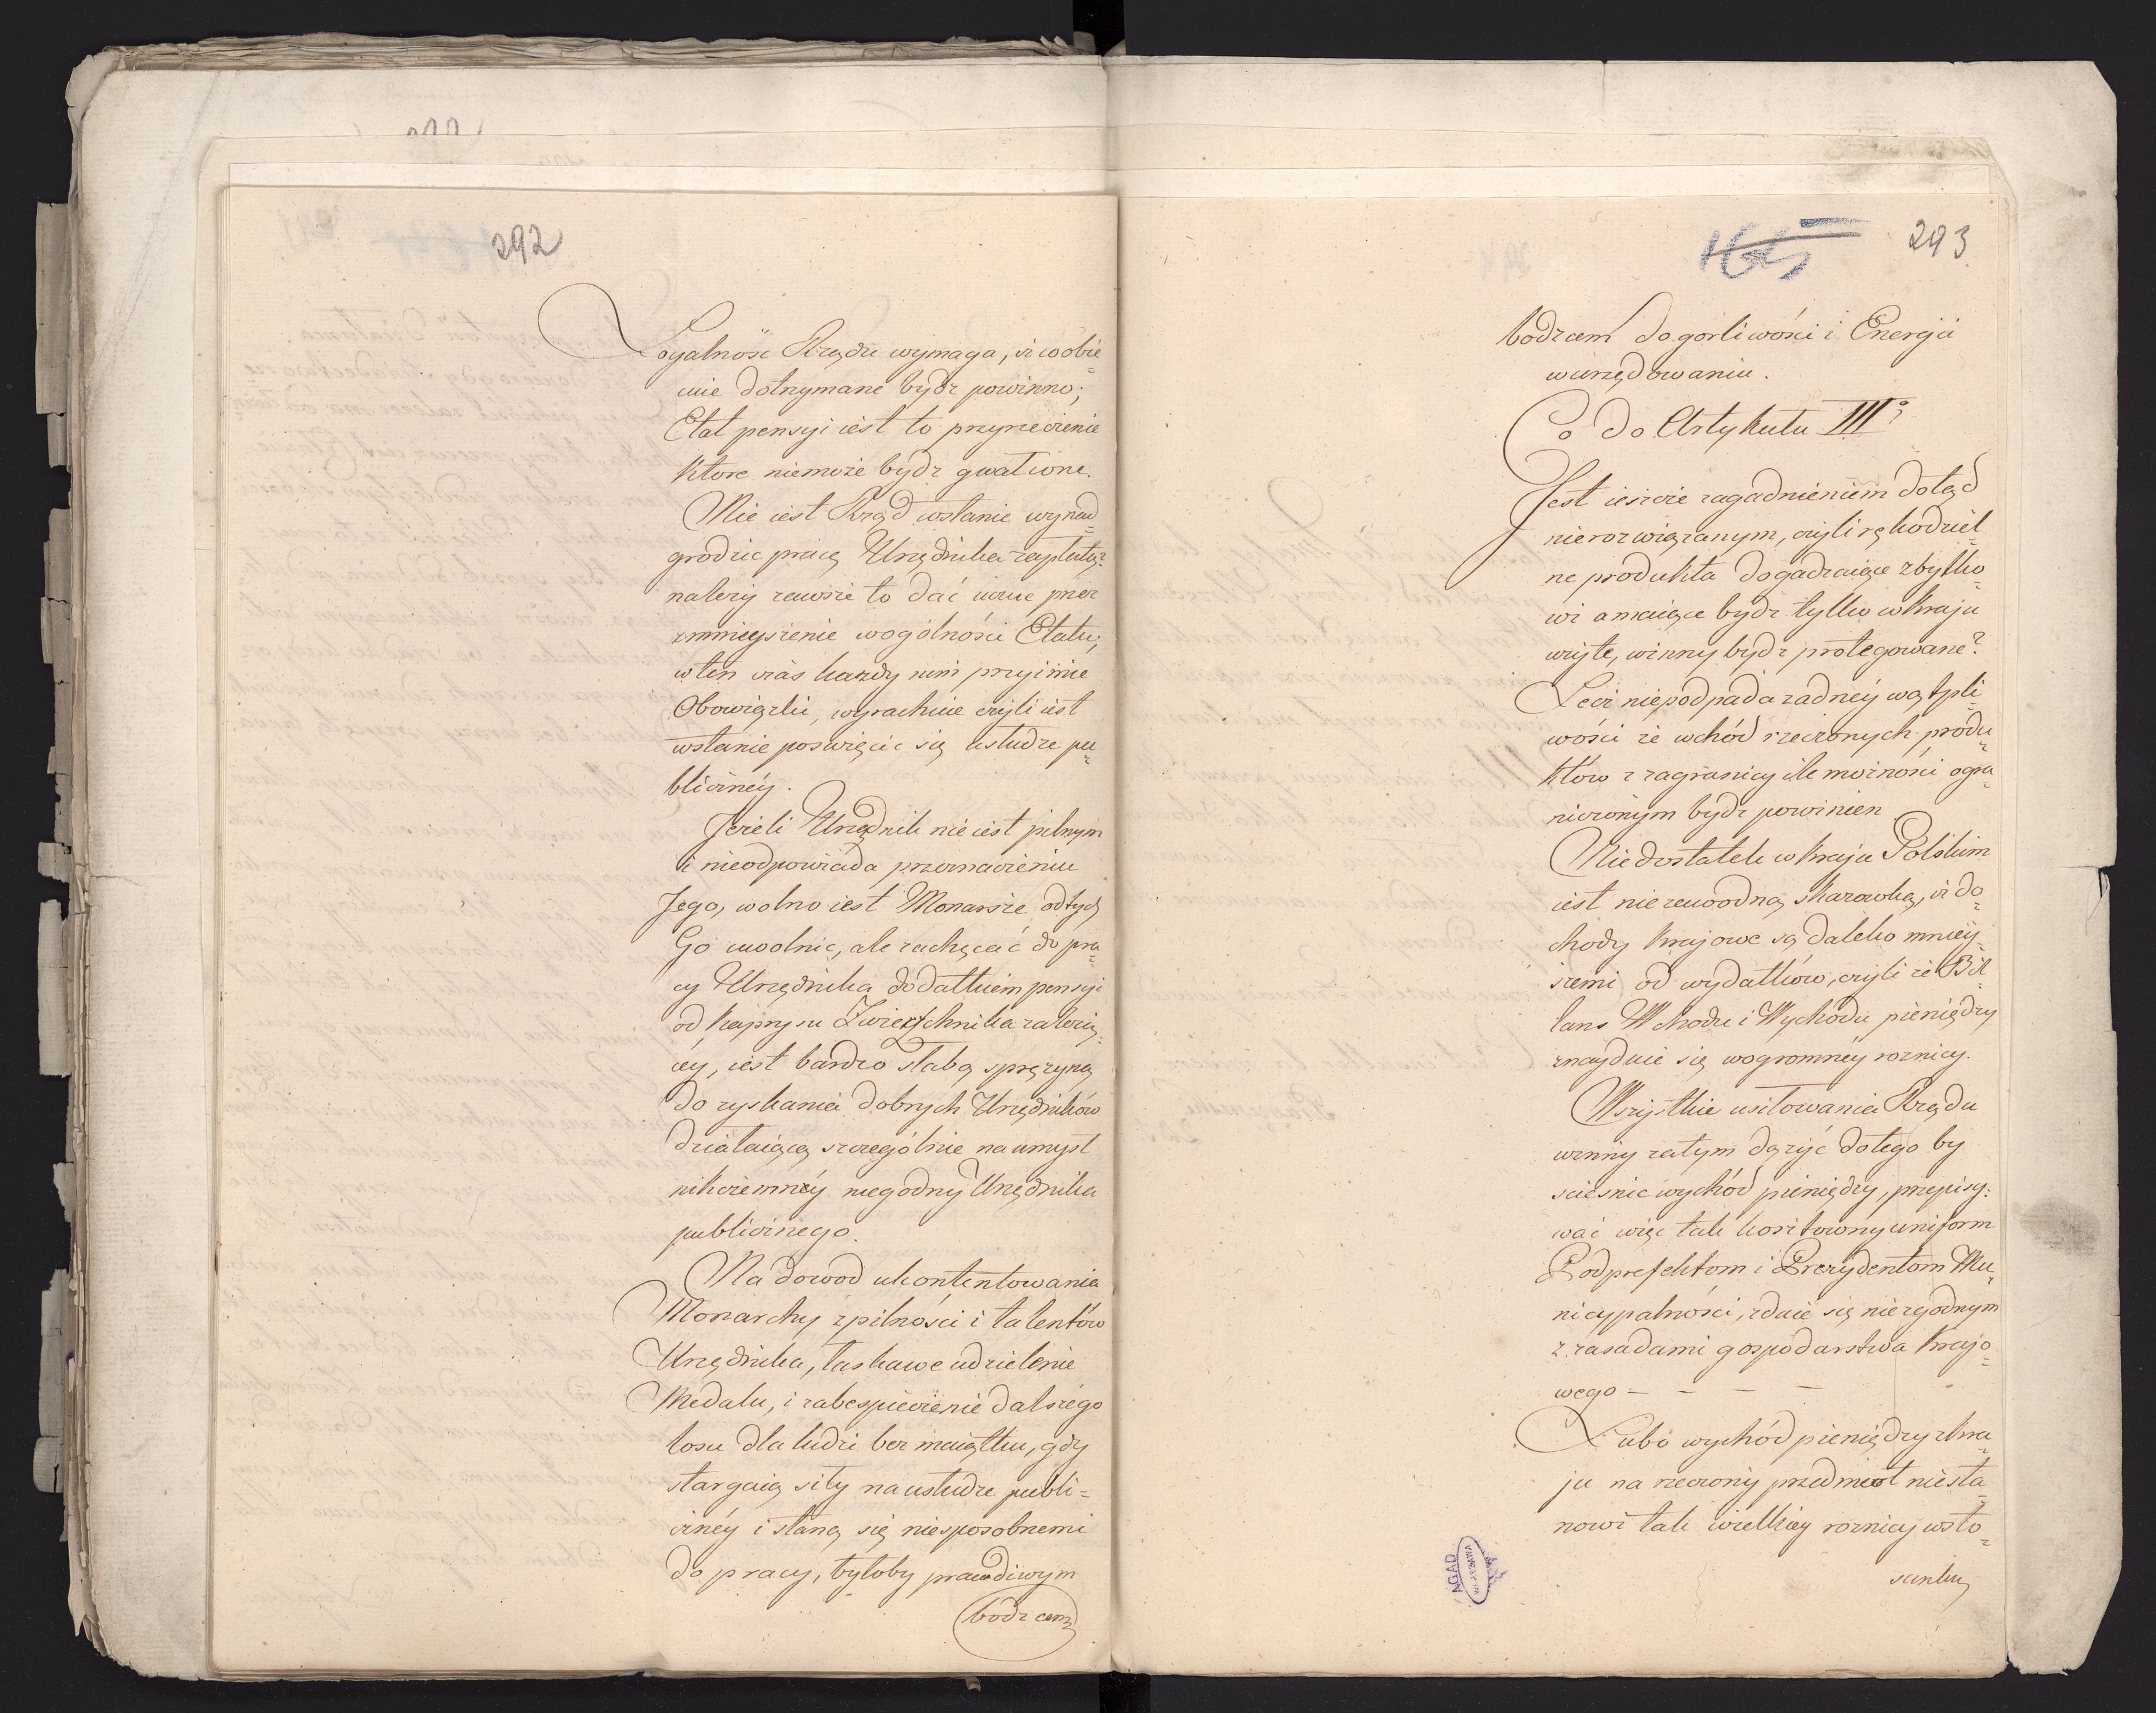 292
Loyalnosc Rządu wymaga, iż co obie=
cuie dotrzymane bydź powinno;
Etat pensyi iest to przyrzeczenie
ktore niemoże bydź gwałcone.
Nie iest Rząd wstanie wynad=
grodzic pracę Urzędnika zapłatą?
należy zawsze to dać uczuc przez
zmnieyszenie wogólności Etatu;
wten czas każdy nim przyimie
Obowiązki, wyrachuie czyli iest
wstanie poswięcic się usłudze pu=
bliczney.
Jeżeli Urzędnik nie iest pilnym
i nieodpowiada przeznaczeniu
Jego, wolno iest Monarsze odtych
Go uwolnic, ale zachęcać do pra=
cy Urzędnika dodatkiem pensyi
od kaprysu Zwierzchnika zależą=
cy, iest bardzo słabą sprężyną
do zyskania dobrych Urzędników
działaiącą szczególnie na umysł
nikczemnéy niegodny Urzędnika
publicznego.
Na dowod ukontentowania
Monarchy z pilności i talentów
Urzędnika, łaskawe udzielenie
Medalu, i zabespieczenie dalszego
losu dla ludzi bez maiątku, gdy
stargaią siły na usłudze publi=
cznéy i staną się niesposobnemi
do pracy, byłoby prawdiwym
bodzcem
293
bodzcem do gorliwości i Energii
wurzędowaniu.
Co do Artykułu III°
Jest ieszcze zagadnieniem dotąd
nierozwiązanym, czyli rękodziel=
ne produkta dogadzaiące zbytko=
wi a maiące bydź tylko w kraju
użyte, winny bydź protegowane?
Lecz niepodpada żadnéy wątpli=
wości że wchód rzeczonych produ=
któw z zagranicy ile możności ogra=
niczonym bydź powinien
Niedostatek w kraju Polskim
iest niezawodną skazowką, iż do=
chody krajowe są daleko mniey=
szemi od wydatków, czyli że Bi=
lans Wchodu i Wychodu pieniędzy
znayduie się wogromnéy roznicy.
Wszystkie usiłowania Rządu
winny zatym dązyć dotego by
sciesnic wychód pieniędzy, przepisy=
wać więc tak kosztowny uniform
Podprefektom i Prezydentom Mu=
nicypalności, zdaie się niezgodnym
z zasadami gospodarstwa krajo=
wego – – – –
Lubo wychód pieniędzy z kra=
ju na rzeczony przedmiot niesta=
nowi tak wielkiey roznicy wsto=
sunku
AGAD